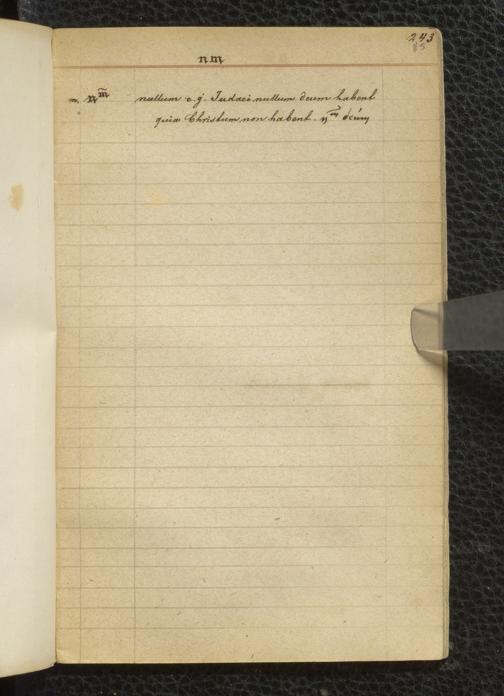 243
85
nm
m. n m̃ nullum e.g. Iudaei nullum deum habent
quia Christum non habent. n m̃ deum